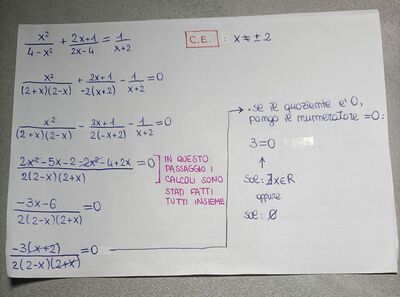 x²/(4-x²) + (2x+1)/(2x-4) = 1/(x+2)
C.E. : x ≠ ±2
x²/((2+x)(2-x)) + (2x+1)/(-2(x+2)) - 1/(x+2) = 0
x²/((2+x)(2-x)) - (2x+1)/(2(-x+2)) - 1/(x+2) = 0
(2x²-5x-2-2x²-4+2x)/(2(2-x)(2+x)) = 0
IN QUESTO
PASSAGGIO I
CALCOLI SONO
STATI FATTI
TUTTI INSIEME
(-3x-6)/(2(2-x)(2+x)) = 0
(-3(x+2))/(2(2-x)(2+x)) = 0
• se il quoziente e' 0,
pongo il numeratore =0:
3=0
↑
sol: ∄x∈R
oppure
sol: ∅